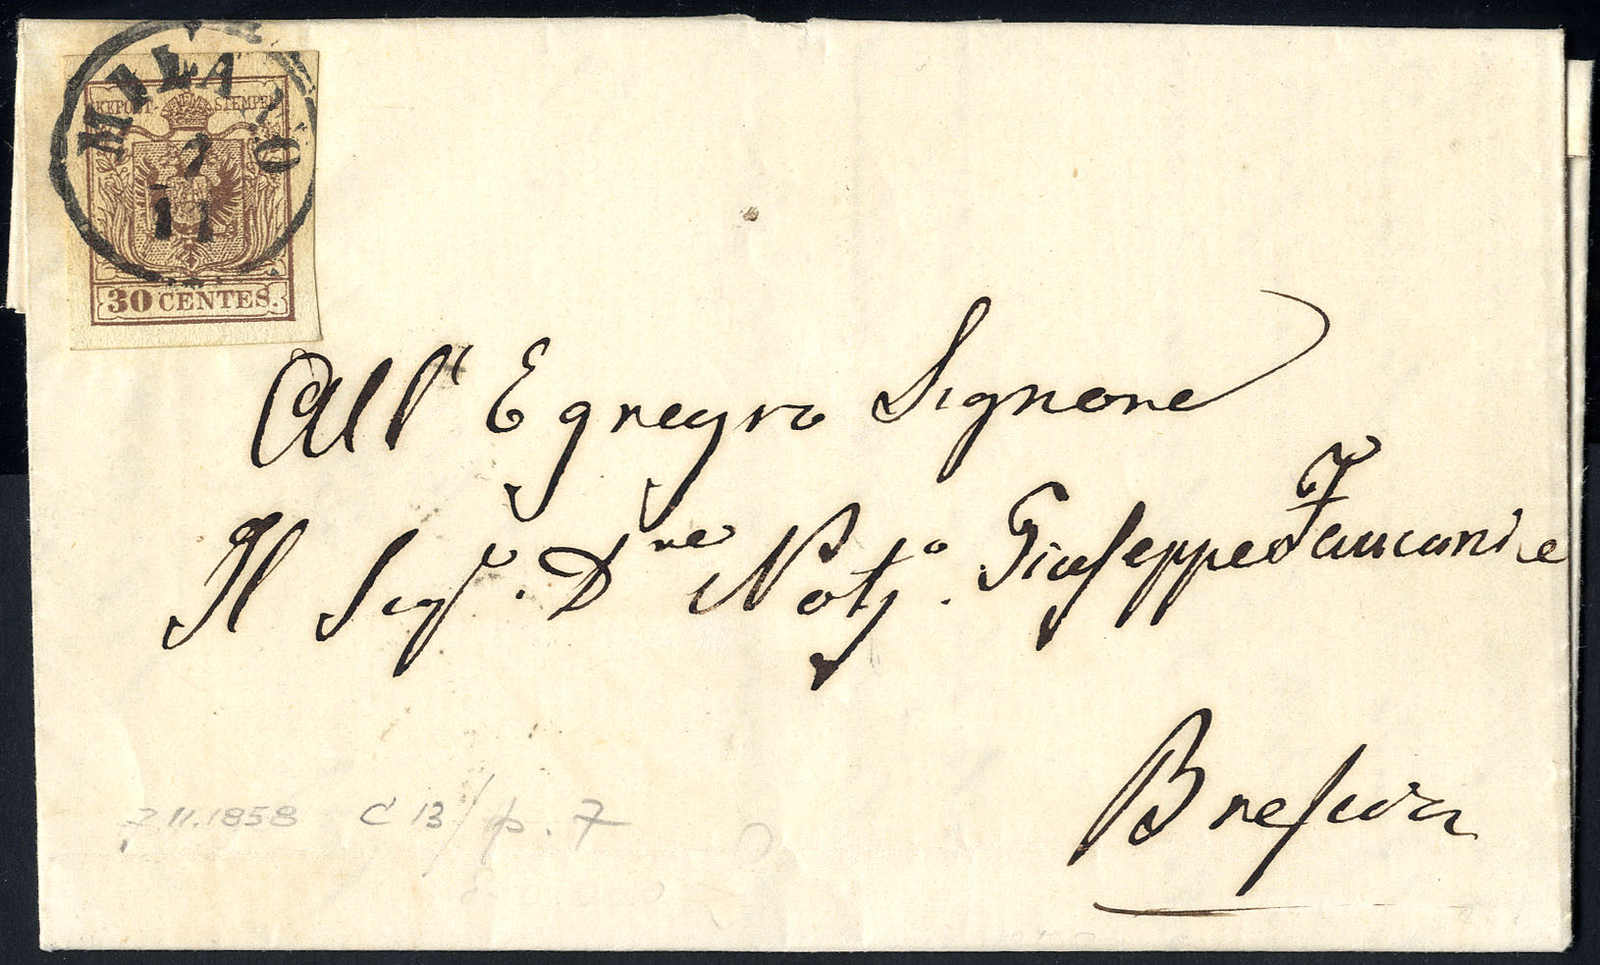 MILANO
7
11
KKPOST-STEMPEL
30 CENTES.
All' Egregio Signore
Il Sigr. Dre Notjo. Giuseppe
Brescia
7 11.1858 C 13/ p. 7